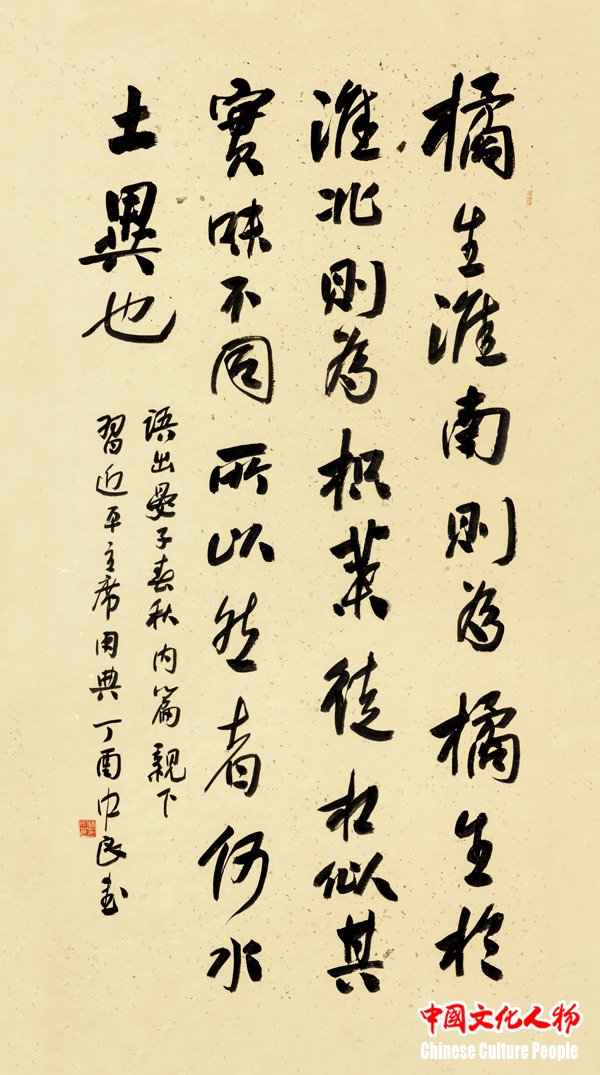 橘生淮南則為橘生於
淮北則為枳葉徒相似其
實味不同所以然者何水
土異也
語出晏子春秋内篇親下
習近平主席用典丁酉書
中国文化人物
Chinese Culture People